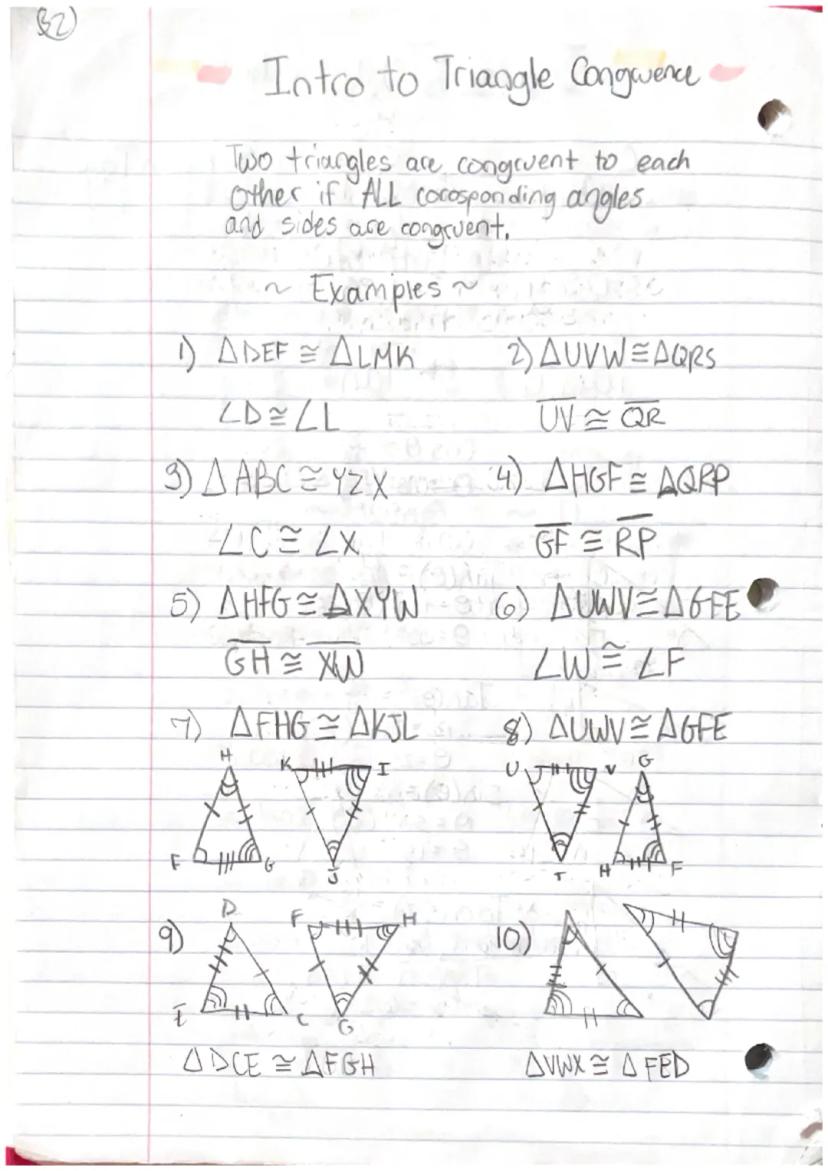 32)
Intro to Triangle Congruence
Two triangles are congruent to each
other if ALL corosponding angles
and sides are congruent.
~ Examples ~
1) △DEF ≅ △LMK 2) △UVW ≅ △QRS
∠D ≅ ∠L U̅V̅ ≅ Q̅R̅
3) △ABC ≅ YZX 4) △HGF ≅ △QRP
∠C ≅ ∠X G̅F̅ ≅ R̅P̅
5) △HFG ≅ △XYW 6) △UWV ≅ △GFE
G̅H̅ ≅ X̅W̅ ∠W ≅ ∠F
7) △FHG ≅ △KJL 8) △UWV ≅ △GFE
H K I U V G
F G J T H F
9) D F H 10)
E C G
△DCE ≅ △FGH △VWX ≅ △FED